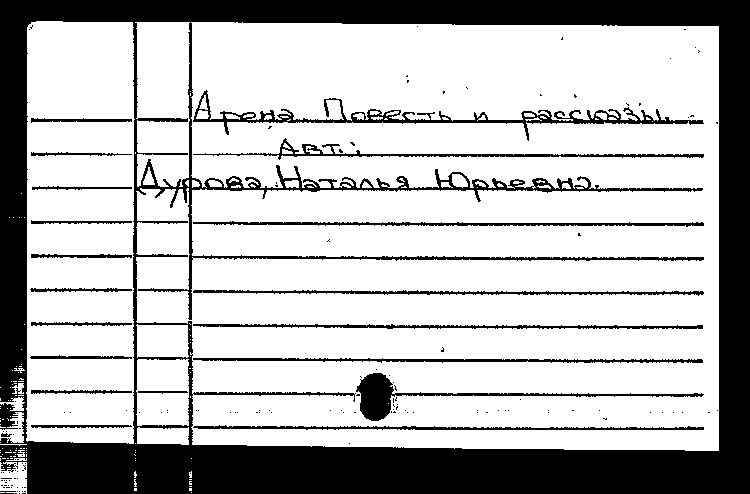 Арена. Повесть и рассказы.
Авт.:
Дурова, Наталья Юрьевна.